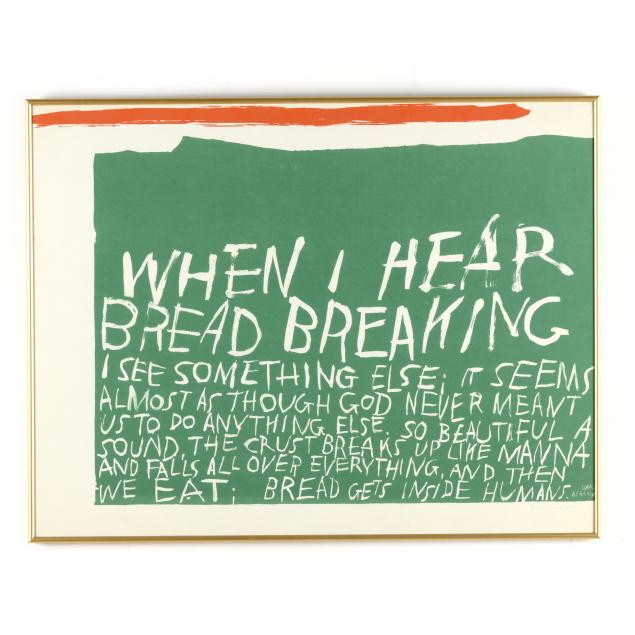 WHEN I HEAR
BREAD BREAKING
I SEE SOMETHING ELSE; IT SEEMS
ALMOST AS THOUGH GOD NEVER MEANT
US TO DO ANYTHING ELSE. SO BEAUTIFUL A
SOUND, THE CRUST BREAKS UP LIKE MANNA
AND FALLS ALL OVER EVERYTHING, AND THEN
WE EAT; BREAD GETS INSIDE HUMANS.
BERRIGAN